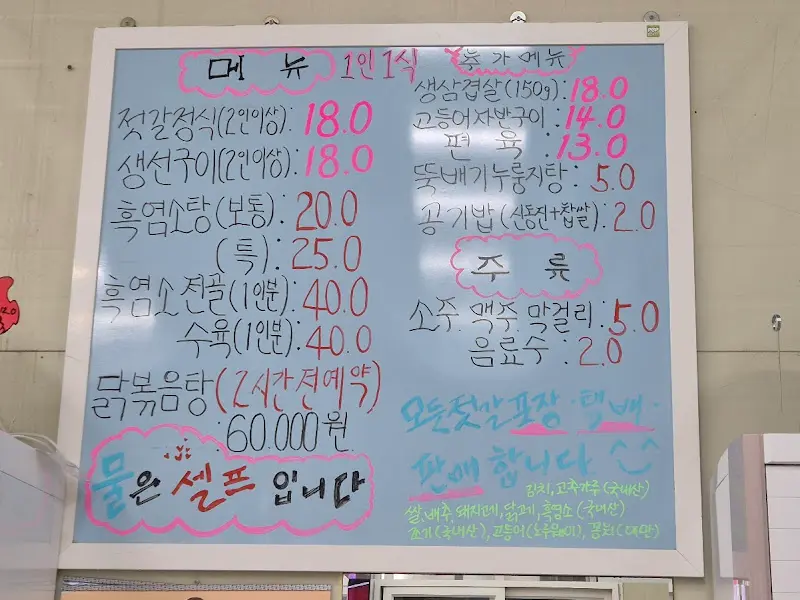 메 뉴 1인 1식
젓갈정식(2인이상): 18.0
생선구이(2인이상): 18.0
흑염소탕(보통): 20.0
(특): 25.0
흑염소전골(1인분): 40.0
수육(1인분): 40.0
닭볶음탕(2시간전예약)
:60.000원
물은 셀프입니다
추가메뉴
생삼겹살(150g): 18.0
고등어자반구이: 14.0
편육: 13.0
뚝배기누룽지탕: 5.0
공기밥(신동진+찹쌀): 2.0
주 류
소주 맥주 막걸리: 5.0
음료수: 2.0
모든젓갈 포장·택배·
판매합니다
김치,고추가루(국내산)
쌀,배추,돼지고기,닭고기,흑염소(국내산)
조기(국내산),고등어(노르웨이),꽁치(대만)